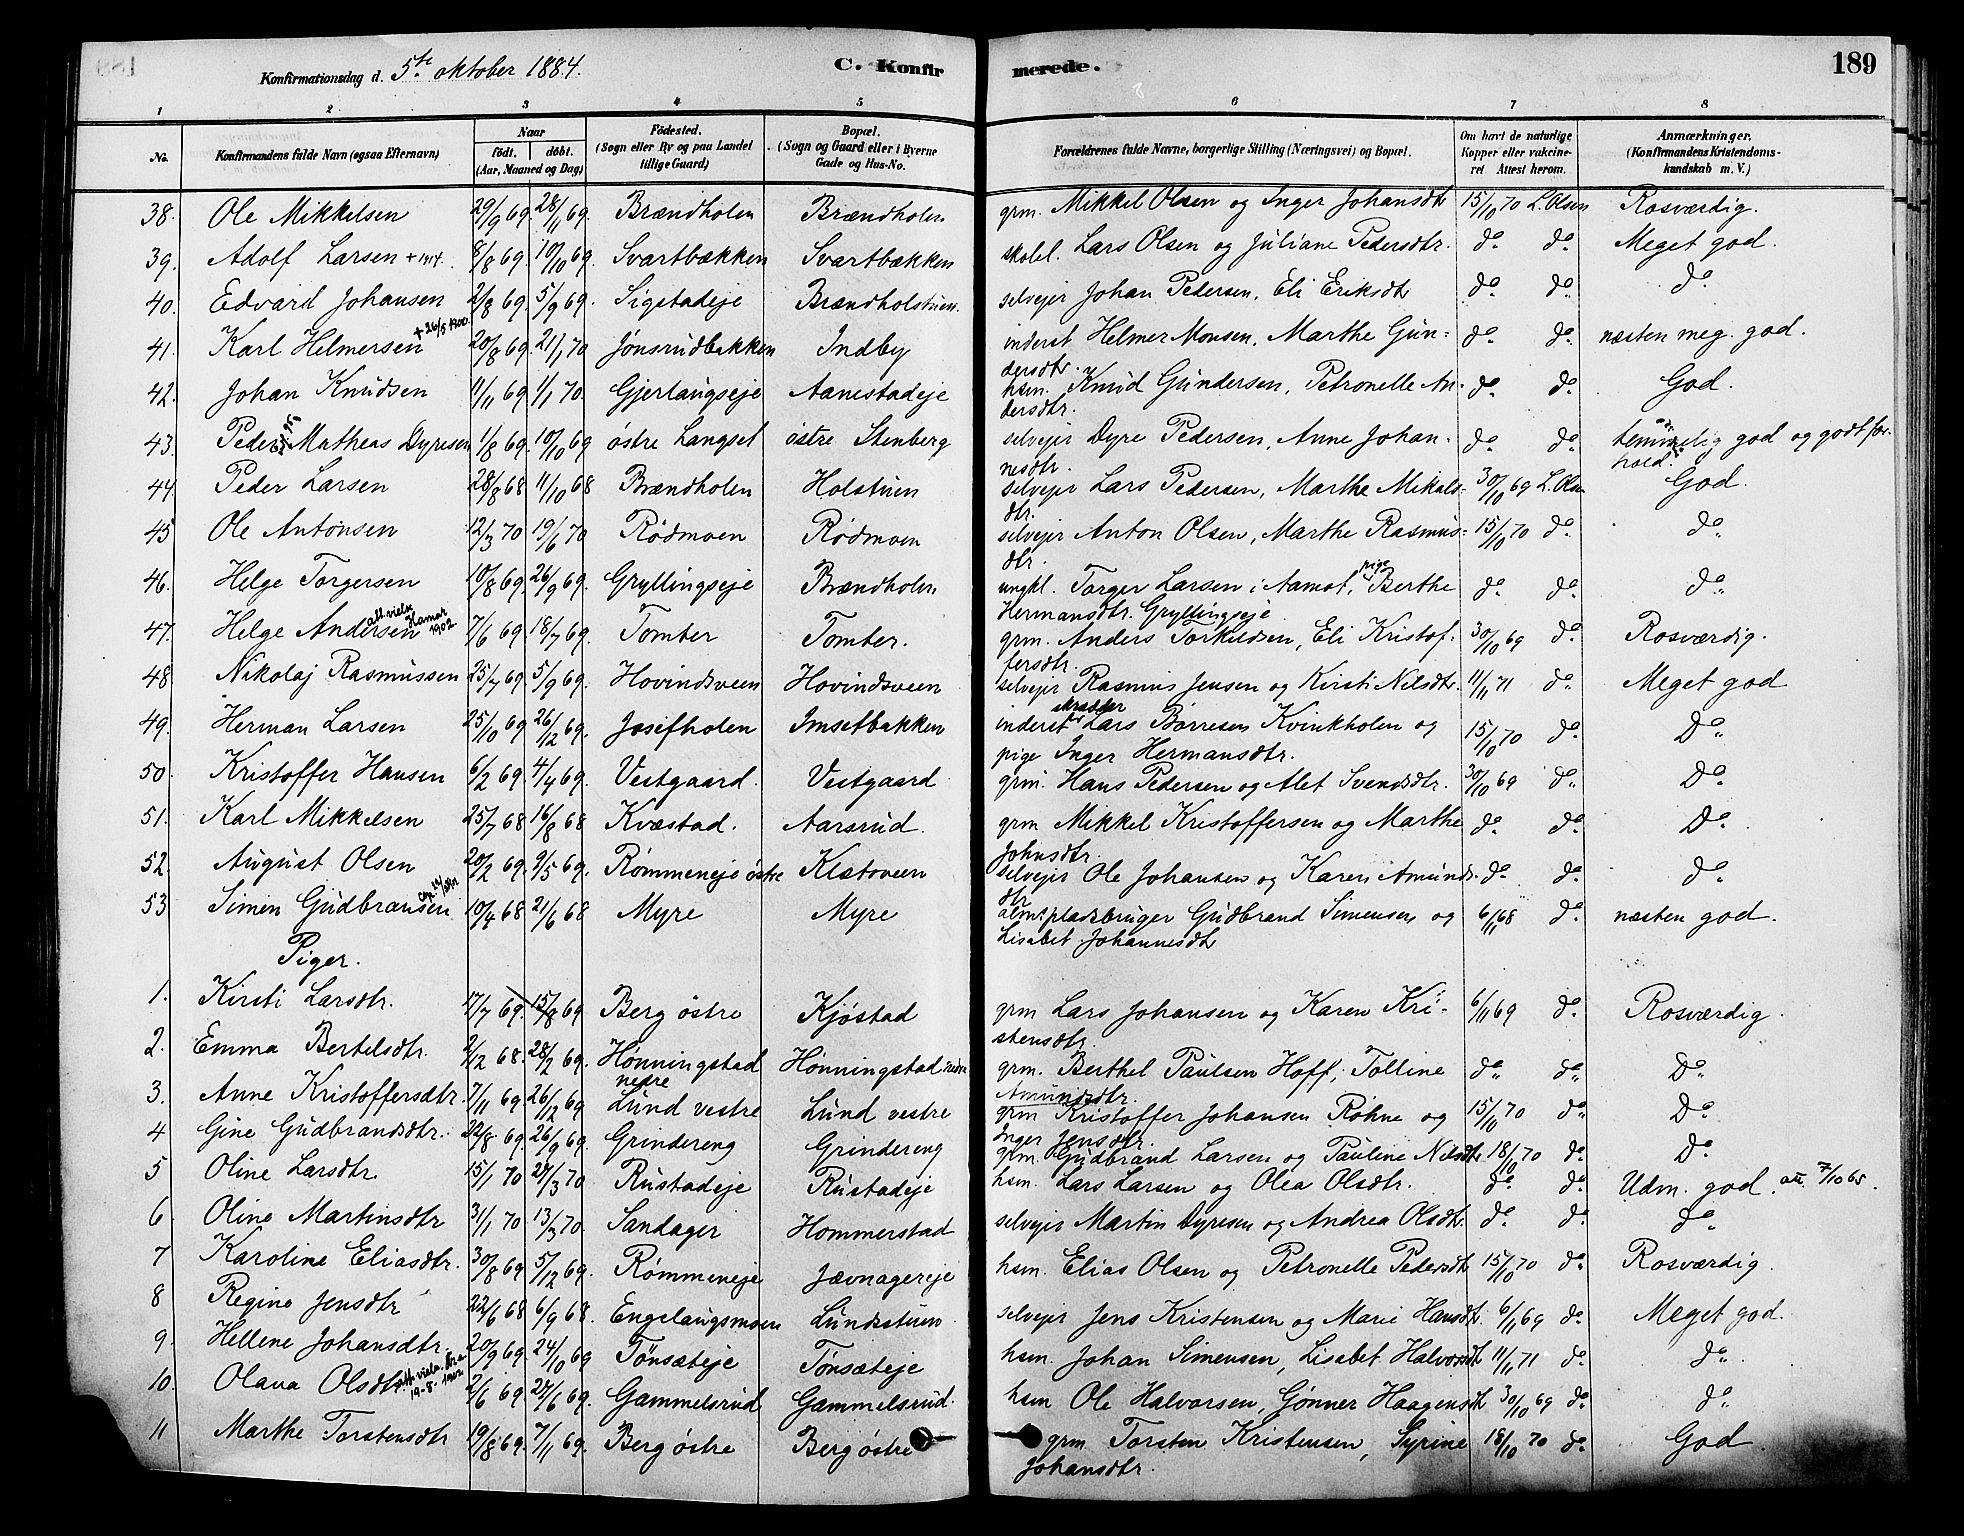 Konfirmationsdag d. 5te oktober 1884. C. Konfirmerede. 189
1 2 3 4 5 6 7 8
No. Konfirmandens fulde Navn (ogsaa Efternavn) Naar födt. döbt. (Aar, Maaned og Dag) Födested. (Sogn eller By og paa Landet tillige Gaard) Bopæl. (Sogn og Gaard eller i Byerne Gade og Hus-No. Forældrenes fulde Navne, borgerlige Stilling (Næringsvei) og Bopæl. Om havt de naturlige Kopper eller vakcineret Attest herom. Anmærkninger. (Konfirmandens Kristendomskundskab m. V.)
38. Ole Mikkelsen 29/9 69. 28/11 69. Brændholen Brændholen grm. Mikkel Olsen og Inger Johansdtr 15/10 70 L. Olsen Rosværdig.
39. Adolf Larsen + 1914. 8/8 69. 10/10 69. Svartbækken Svartbækken skolel. Lars Olsen og Juliane Pedersdtr. do do Meget god.
40. Edvard Johansen 2/8 69. 5/9 69. Sigstadeje Brændholstuen. selvejer Johan Pedersen, Eli Eriksdtr do do do
41. Karl Helmersen + 26/5 1900. 20/8 69. 21/1 70 Jønsrudbakken Indby inderst Helmer Monsen, Marthe Gundersdtr. do do næsten meg. god.
42. Johan Knudsen 11/11 69 1/1 70. Gjerlaugseje Aanestadeje hsm. Knud Gundersen, Petronelle Andersdtr. do do God.
43. Peder Matheas Dyresen 1/8 69. 10/10 69 østre Langset østre Stenberg selvejer Dyre Pedersen, Anne Johannesdtr. do do temmelig god og godt forhold.
44. Peder Larsen 28/8 68 11/10 68 Brændholen Holstuen selvejer Lars Pedersen, Marthe Mikalsdtr. 30/10 69 L. Olsen God.
45 Ole Antonsen 12/3 70 19/6 70 Rødmoen Rødmoen selvejer Anton Olsen, Marthe Rasmusdtr. 15/10 70 do do
46. Helge Torgersen 10/8 69. 26/9 69. Gryllingseje Brændholen ungkl. Torger Larsen i Aamot, pige Berthe Hermansdtr. Gryllingseje do do do
47. Helge Andersen att. vielse Hamar 1902 7/6 69. 18/7 69. Tomter Tomter. grm. Anders Torkildsen, Eli Kristoffersdtr. 30/10 69 do Rosværdig.
48 Nikolaj Rasmussen 25/7 69. 5/9 69. Hovindsveen Hovindsveen selvejer Rasmus Jensen og Kirsti Nilsdtr. 11/11 71 do Meget god
49. Herman Larsen 25/10 69 26/12 69. Josefholen Imsetbakken inderst skrædder Lars Børresen Kvinkholen og pige Inger Hermansdtr. 15/10 70 do Do
50. Kristoffer Hansen 6/2 69. 4/4 69. Vestgaard. Vestgaard grm. Hans Pedersen og Alet Svendsdtr. 30/10 69 do Do
51. Karl Mikkelsen 25/7 68 16/8 68 Kvæstad. Aarsrud. grm Mikkel Kristoffersen og Marthe Johnsdtr. do do Do.
52. August Olsen 20/2 69. 9/5 69. Rømmeneje østre Klætoveen selvejer Ole Johansen og Karen Amundsdtr do do do
53 Simen Gudbransen 10/4 68 21/6 68 Myre Myre almspladsbruger Gudbrand Simensen og Lisabet Johannesdtr 6/11 68 do næsten god.
Piger.
1. Kirsti Larsdtr. 17/7 69. 15/8 69 Berg østre Kjøstad grm Lars Johansen og Karen Kristensdtr. 6/11 69 do Rosværdig.
2. Emma Bertelsdtr. 2/12 68. 28/2 69. Hønningstad nedre Hønningstad nedre grm. Berthel Paulsen Hoff, Tolline Amundsdtr. do do Do
3. Anne Kristoffersdtr. 7/11 69. 26/12 69 Lund vestre Lund vestre grm Kristoffer Johansen Røhne og Inger Jensdtr. 15/10 70 do Do
4 Gine Gudbrandsdtr. 22/8 69. 26/9 69. Grindereng Grindereng grm. Gudbrand Larsen og Pauline Nilsdtr 18/10 70 do Do
5 Oline Larsdtr. 15/1 70 27/3 70 Rustadeje Rustadeje hsm. Lars Larsen og Olea Olsdtr. do do Udm. god. att. 7/10 65.
6. Oline Martinsdtr 31/1 70 13/3 70. Sandager Hommerstad selvejer Martin Dyresen og Andrea Olsdtr. do do do
7 Karoline Eliasdtr. 30/8 69 5/12 69. Rømmeneje Jævnagereje hsm. Elias Olsen og Petronelle Pedersdtr 15/10 70 do Rosværdig.
8 Regine Jensdtr 22/6 68 6/9 68. Engelaugsmoen Lundsstuen. selvejer Jens Kristensen og Marie Hansdtr. 6/11 69 do Meget god.
9. Hellene Johansdtr. 20/9 69. 24/10 69 Tønsæteje Tønsæteje hsm. Johan Simensen, Lisabet Halvorsdtr 11/11 71 do do
10. Olava Olsdtr 2/6 69. 27/6 69. Gammelsrud Gammelsrud. hsm Ole Halvorsen, Gønner Haagensdtr 30/10 69 do do
11 Marthe Torstensdtr 19/8 69. 7/11 69. Berg østre Berg østre grm. Torsten Kristensen, Syrine Johansdtr. 18/10 70 do God